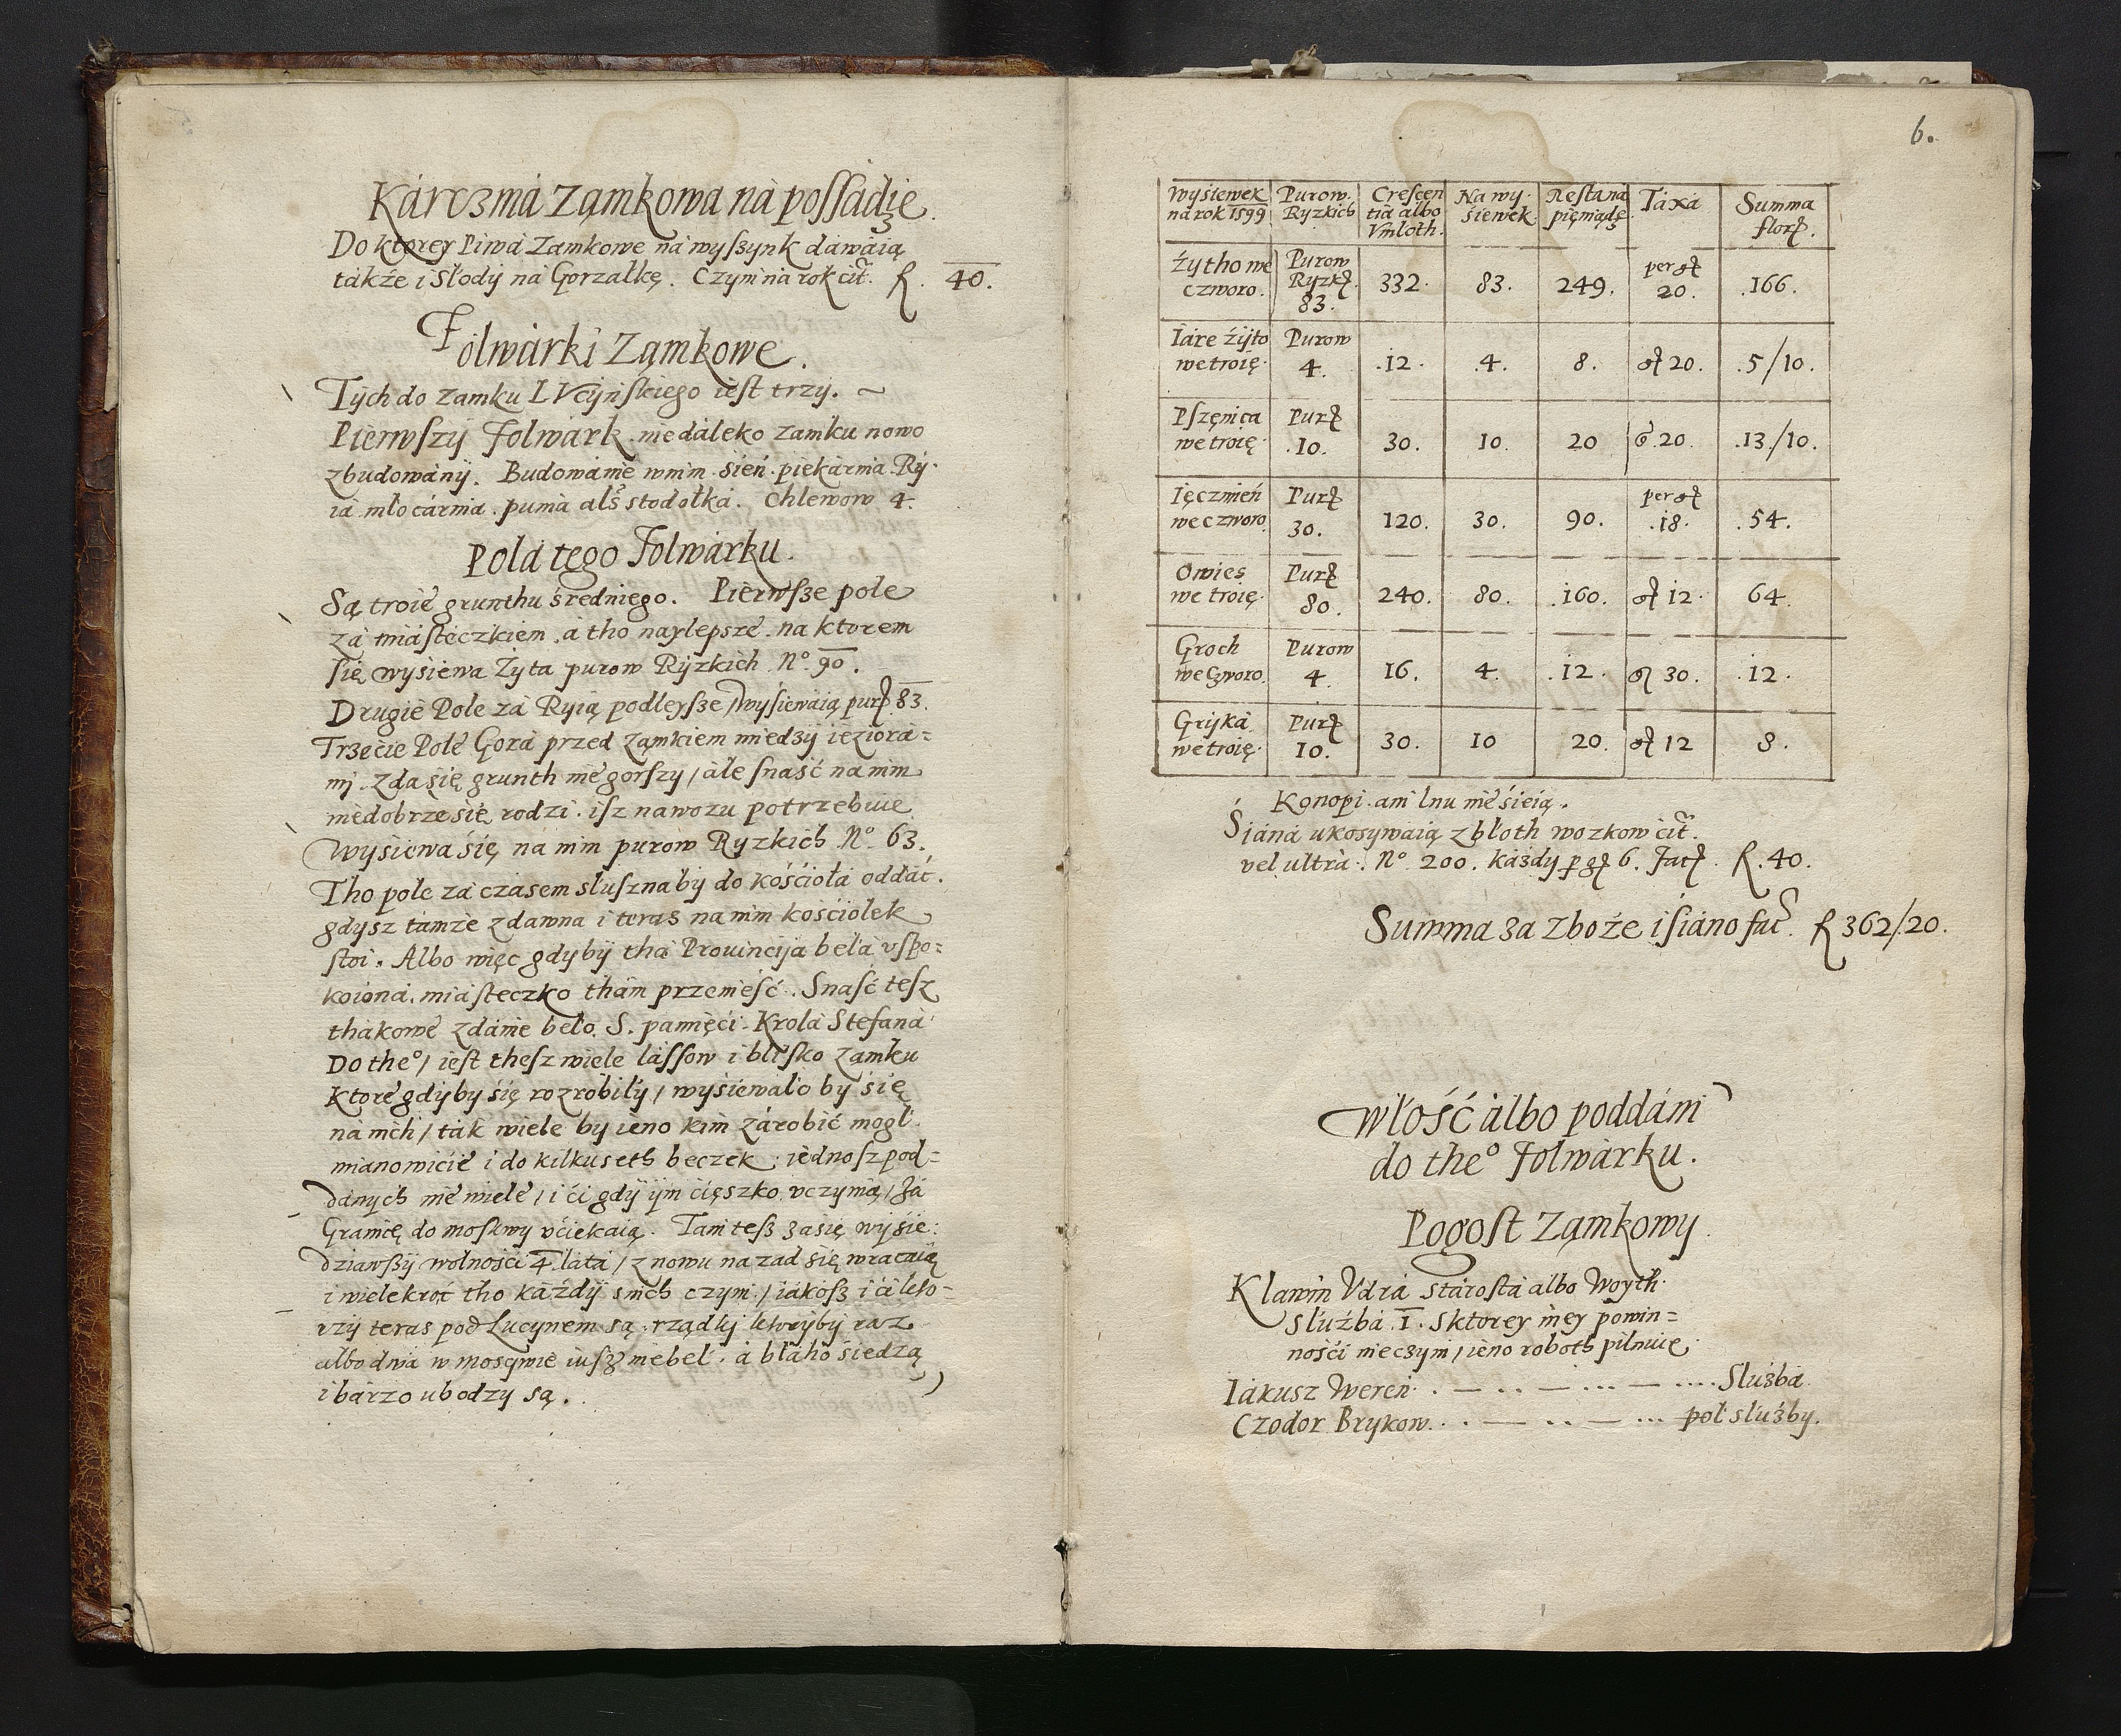 Karczmá Ząmkowa ná possadzie.
Do ktorey Piwá Zamkowe ná wyszynk dáwáią
tákże i Słody ná Gorzałkę. Czym ná rok cit. f. 40.
Folwárki Ząmkowe.
Tych do zamku LVcyńskiego iest trzy. ~
Pierwszy Folwark niedáleko zamku nowo
zbudowány. Budowánie w nim sień piekárnia Ry-
ia młocárnia. puniá als stodołká. Chlewow 4.
Polá tego Folwárku.
Są troie grunthu średniego. Pierwsze pole
zá miásteczkiem. á tho naylepsze. na ktorem
się wysiewa Żyta purow Ryzkich N° 90.
Drugie Pole zá Ryią podleysze / wysiewáią pur 83.
Trzecie Pole Gorá przed Ząmkiem miedzy iezioRá=
mi. zda się grunth nie gorszy / ále snaść na nim
niedobrze sie rodzi. isz nawozu potrzebuie
Wysiewa się ná nim purow Ryzkich N° 63.
Tho pole zá czasem słuszna by do kościołá oddáć.
gdysz támże zdawna i teras na nim kościołek
stoi. Albo więc gdyby thá Prouincyia belá vspo=
koioná. miásteczko thám przenieść. Snaść tesz
thákowe zdánie beło S. pamięći Krolá Stefaná
Do the° / iest thesz wiele lássow i blisko zamku
Ktore gdyby się rozrobiły / wysiewáło by się
ná nich / ták wiele by ieno kim zárobić mogł.
mianowicie i do kilkuseth beczek. iednosz pod=
dánych nie wiele / i ći gdy ijm cięszko vczynią / zá
Gránicę do moskwy vćiekáią. Tam tesz zásię wysie=
dziawszy wolności 4. látá / znowu na zad się wracáią
i wielekroć tho káżdy s nich czyni / iákosz i ći kto=
rzy teras pod Lucynem są. rządki ktoryby raz
álbo dwá w moskwie iusz nie beł. á błáho siedzą
i bárzo ubodzy są.
6.
Wysiewek ná rok 1599 | Purow. Ryzkich | Crescentia albo Vmłoth. | Na wysiewek. | Resta ná pięniądze. | Táxá | Summa flor.
Żytho we czworo. | Purow Ryzk. 83. | 332. | 83. | 249. | per g 20. | .166.
Iáre żyto we troię. | Purow 4. | .12. | .4. | 8. | g 20. | .5/10.
Pszęnica we troię. | Pur .10. | 30. | 10. | 20 | g 20. | .13/10.
Ięczmień we czworo | Pur 30. | 120. | 30. | 90. | per g .18. | .54.
Owies we troię. | Pur 80. | 240. | 80. | .160. | g 12. | 64.
Groch we czworo. | Purow 4. | 16. | 4. | .12. | g 30. | .12.
Gryká we troię. | Pur 10. | 30. | 10 | 20. | g 12 | 8.
Konopi ani lnu nie śieią.
Siáná ukosywáią z błoth wozkow cit.
vel ultrá. N° 200. káżdy p g 6. fac. f. 40.
Summa zá zboże i siáno fac. f 362/20.
Włość álbo poddáni
do the° Folwárku.
Pogost Ząmkowy.
Klawin Vdra stárostá álbo Woyth.
służbá .I. s ktorey iney powin=
ności nie czyni / ieno roboth pilnuie.
Iákusz Wereń. . — .. — ... — .... Służbá
Czodor Brykow. . — .. — ... poł służby.